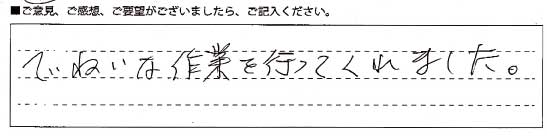 ■ご意見、ご感想、ご要望がございましたら、ご記入ください。
ていねいな作業を行ってくれました。